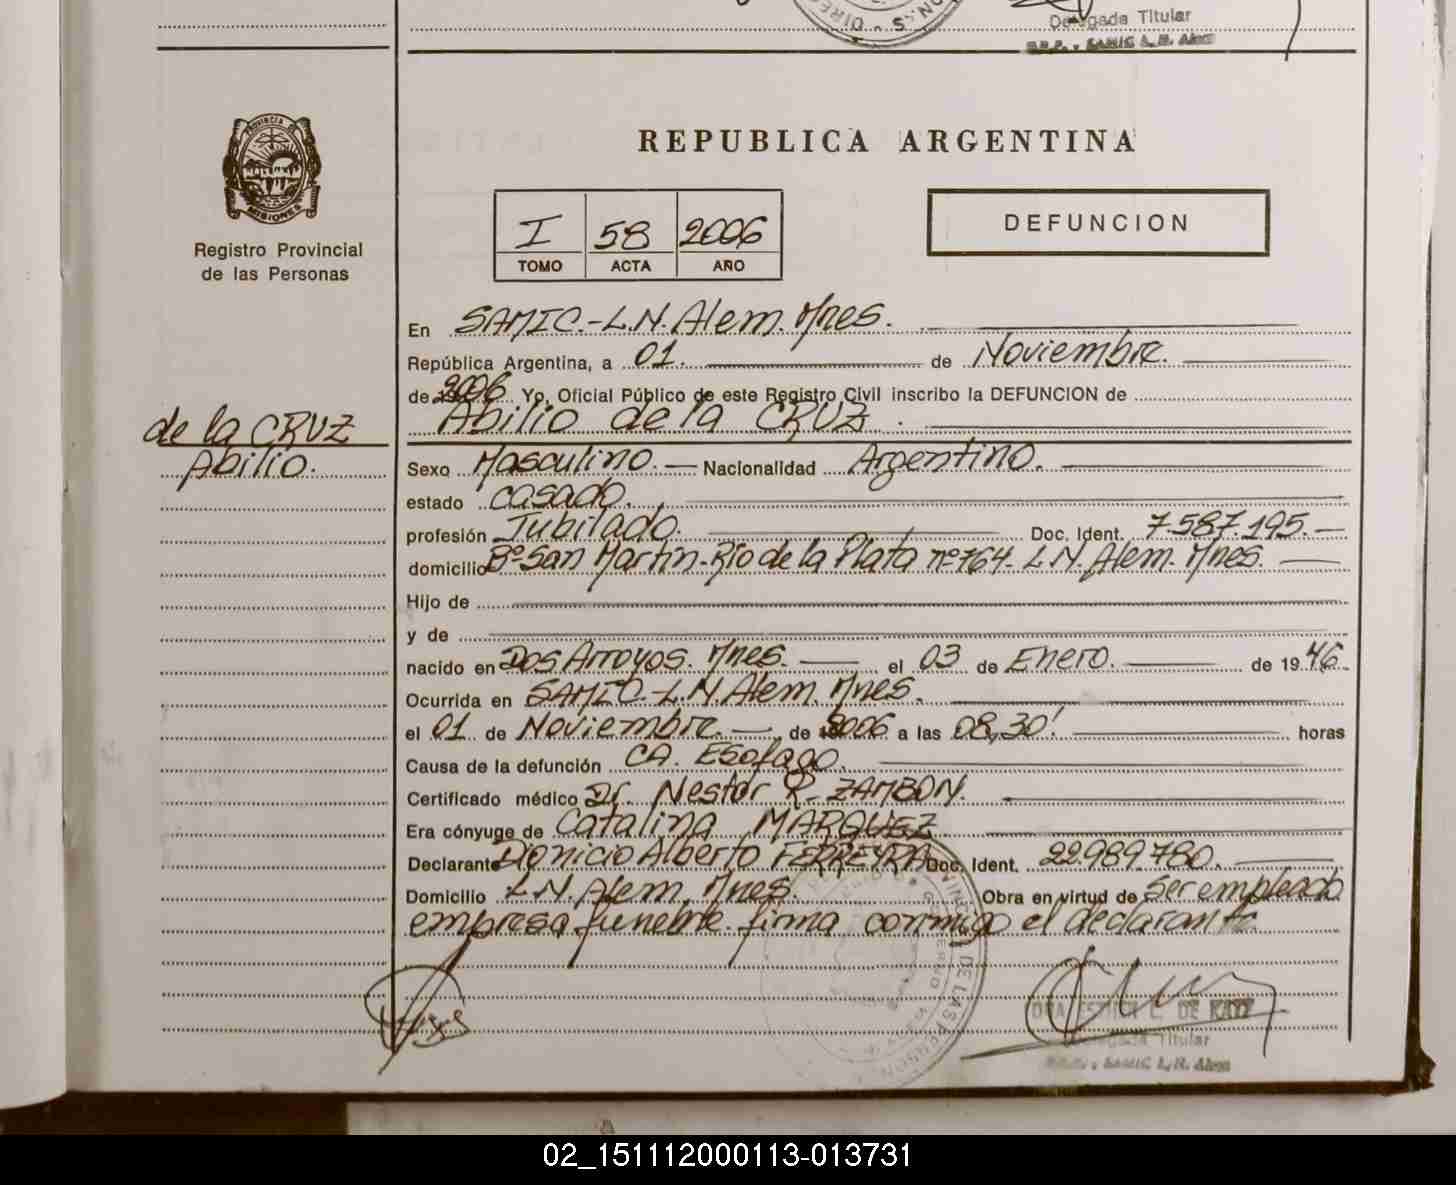 Delegada Titular
PROVINCIA DE
MISIONES
Registro Provincial
de las Personas
REPUBLICA ARGENTINA
I 58 2006
TOMO ACTA AÑO
DEFUNCION
En SAMIC.-L.N. Alem. Mnes.
República Argentina, a 01. de Noviembre.
de 2006 Yo, Oficial Público de este Registro Civil inscribo la DEFUNCION de
Abilio de la CRUZ.
de la CRUZ
Abilio.
Sexo Masculino. Nacionalidad Argentino.
estado casado.
profesión Jubilado. Doc. Ident. 7.587.195.-
domicilio Bº San Martín-Río de la Plata nº 764- L.N. Alem. Mnes.
Hijo de
y de
nacido en Dos Arroyos. Mnes. el 03 de Enero. de 1946
Ocurrida en SAMIC.-L.N. Alem. Mnes.
el 01 de Noviembre. de 2006 a las 08,30' horas
Causa de la defunción CA. Esofago.
Certificado médico Dr. Nestor R. ZAMBON.
Era cónyuge de Catalina MARQUEZ
Declarante Dionicio Alberto FERREYRA Doc. Ident. 22.989.780.
Domicilio L.N. Alem. Mnes. Obra en virtud de ser empleado
empresa funebre. firma conmigo el declarante
DE LAS PERSON
DE KAYZ
Delegada Titular
SAMIC L.N. Alem
02_151112000113-013731